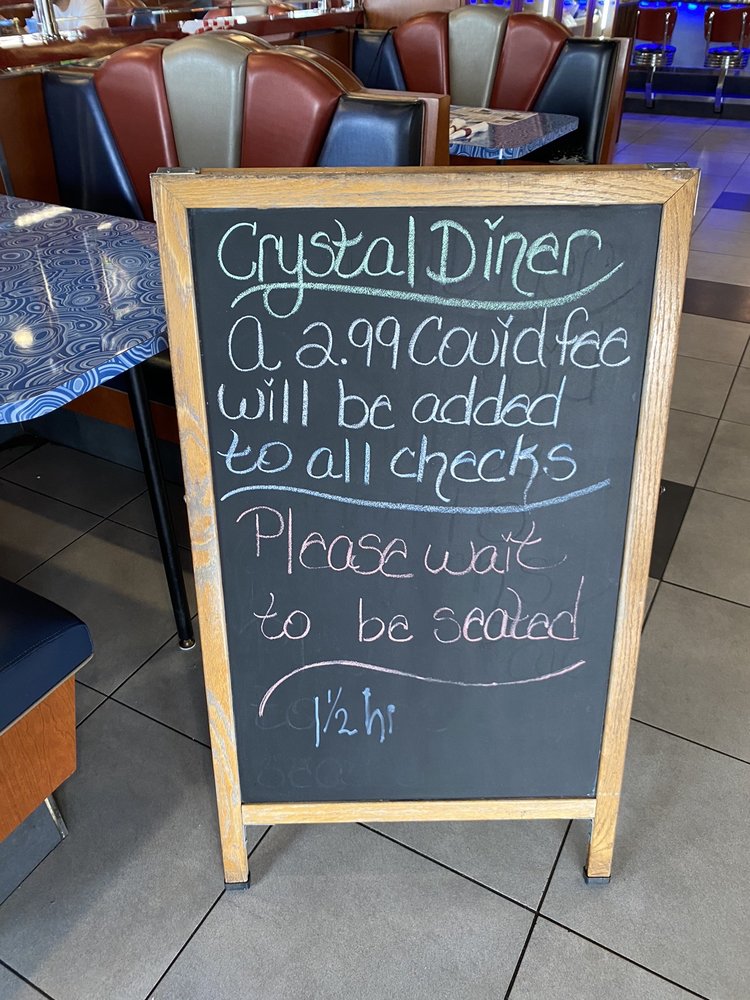 Crystal Diner
A 2.99 Covid fee
will be added
to all checks
Please wait
to be seated
1½ hr